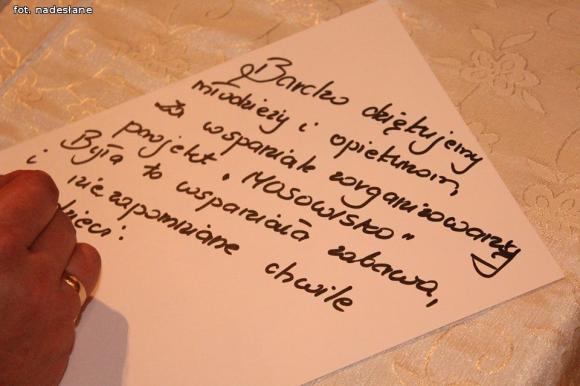 fot. nadesłane
Bardzo dziękujemy
młodzieży i opiekunom
za wspaniale zorganizowany
projekt "MOSOWISKO"
Była to wspaniała zabawa,
i niezapomniane chwile
dzieci: